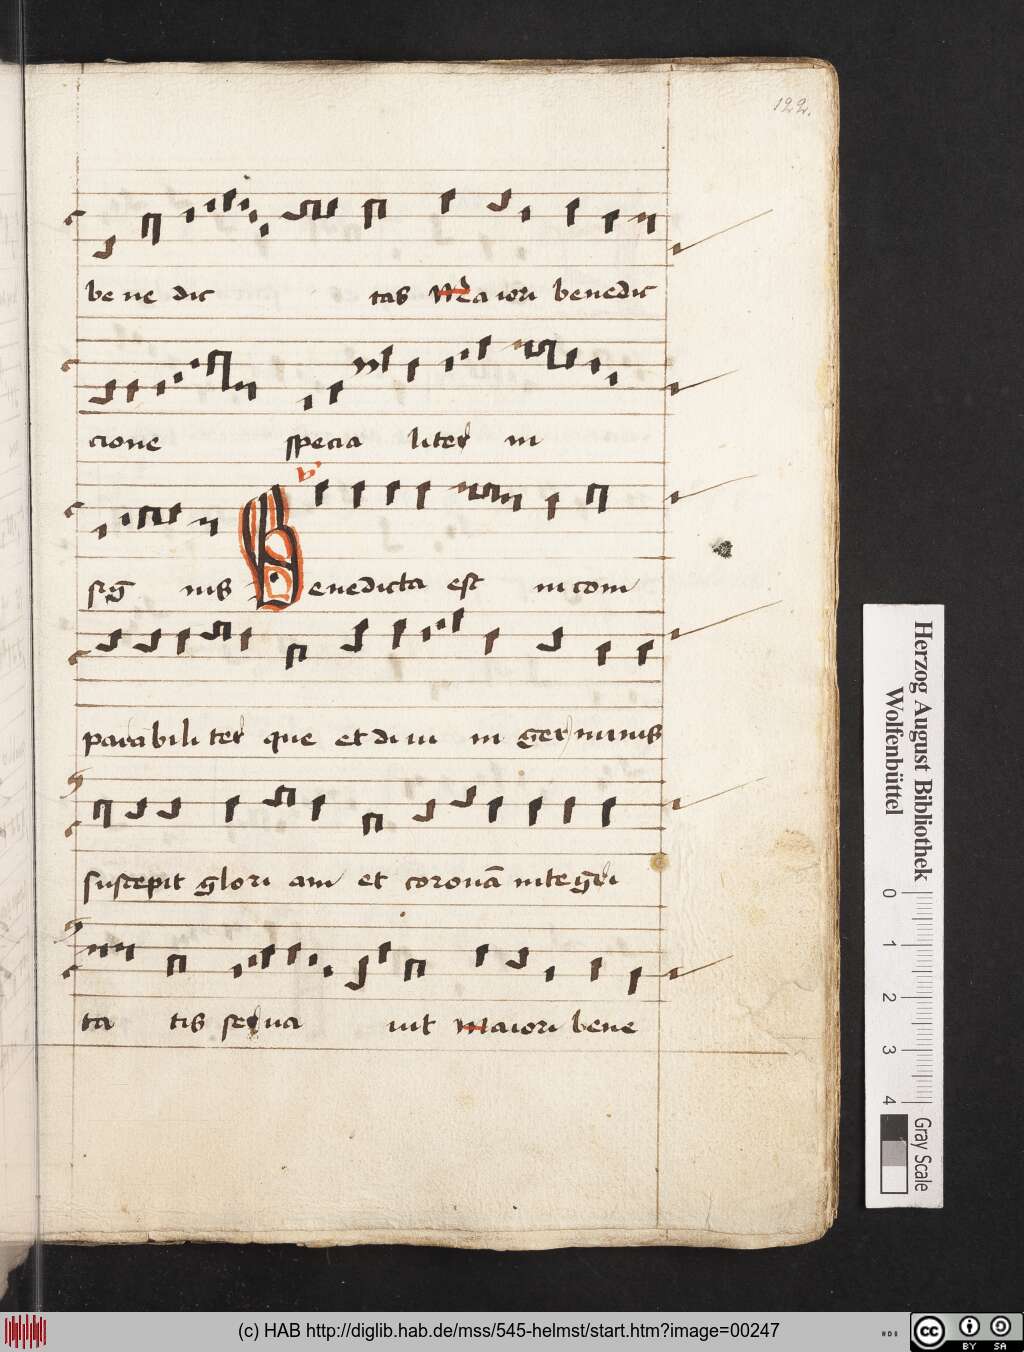 122.
be ne dic tas Maiori benedic
cione specia liter in
sig̅ nis Benedicta est incom
parabili ter que et diui in ger minis
suscepit glori am et coronā integri
ta tis serua uit Maiori bene
Herzog August Bibliothek
Wolfenbüttel
0 1 2 3 4
Gray Scale
(c) HAB http://diglib.hab.de/mss/545-helmst/start.htm?image=00247
cc BY SA